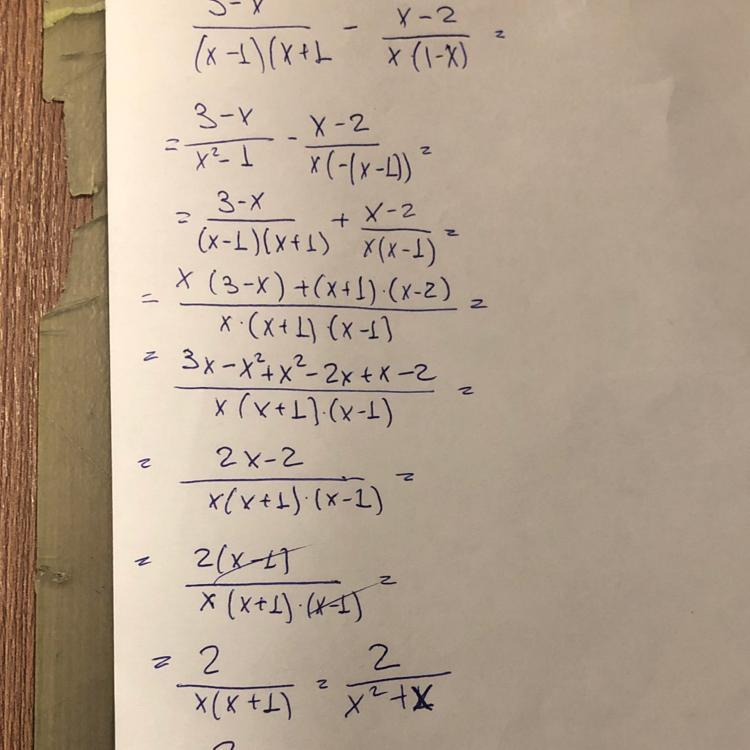 3-x/(x-1)(x+1 - x-2/x(1-x) =
= 3-x/x²-1 - x-2/x(-(x-1)) =
= 3-x/(x-1)(x+1) + x-2/x(x-1) =
= x(3-x)+(x+1)·(x-2)/x·(x+1)(x-1) =
= 3x-x²+x²-2x+x-2/x(x+1)·(x-1) =
= 2x-2/x(x+1)·(x-1) =
= 2(x-1)/x(x+1)·(x-1) =
= 2/x(x+1) = 2/x²+x